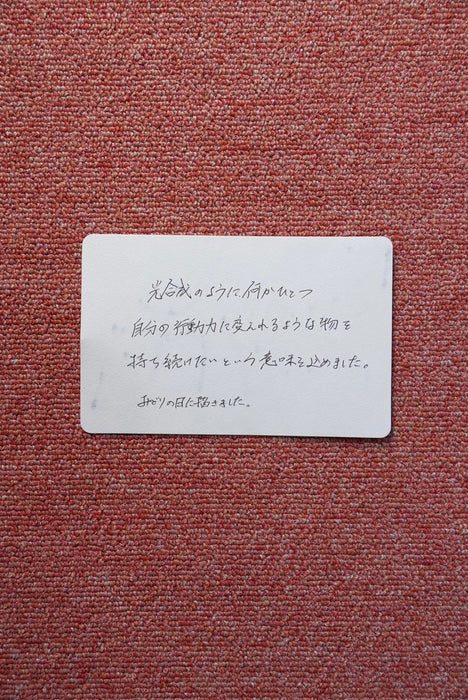 光合成のように、何かひとつ
自分の行動力に変えれるような物を
持ち続けたいという意味を込めました。
みどりの日に描きました。